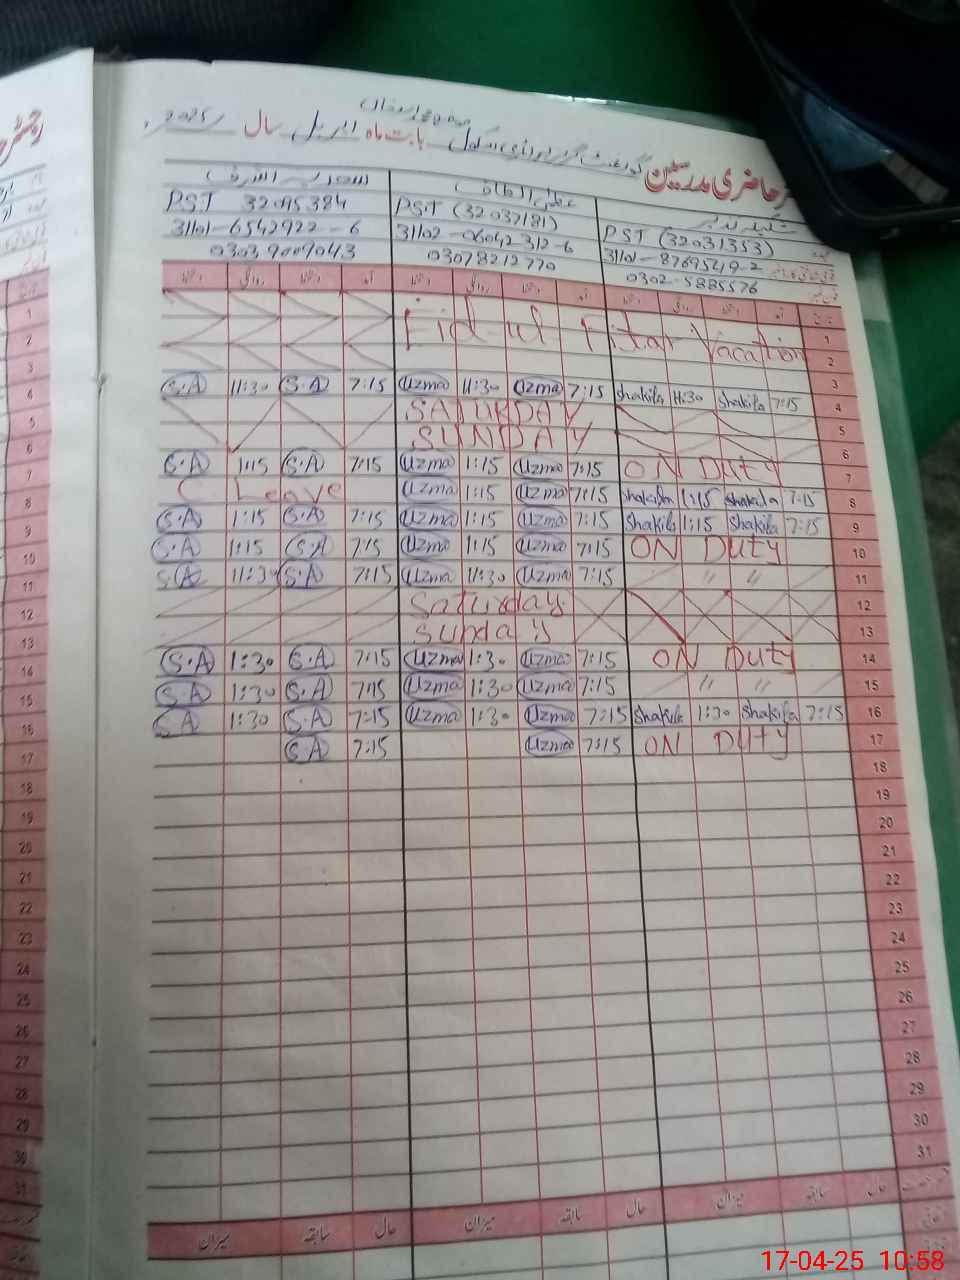 حاضری مدرسین گورنمنٹ گرلز پرائمری سکول بابت ماہ اپریل سال 2025ء
سعدیہ اشرف
PST 32095384
31101-6542922-6
03039009043
عظمیٰ الطاف
PST (32037181)
31102-06042312-6
03078212770
PST (32031353)
31101-8769549-2
0302-5885576
دستخط روانگی دستخط آمد دستخط روانگی دستخط آمد دستخط روانگی دستخط آمد تاریخ
Eid-ul Fitar Vacation
1
2
3
S.A 11:30 S.A 7:15 Uzma 11:30 Uzma 7:15 Shakila 11:30 Shakila 7:15 4
SATURDAY 5
SUNDAY 6
S.A 1:15 S.A 7:15 Uzma 1:15 Uzma 7:15 ON Duty 7
C. Leave Uzma 1:15 Uzma 7:15 Shakila 1:15 Shakila 7:15 8
S.A 1:15 S.A 7:15 Uzma 1:15 Uzma 7:15 Shakila 1:15 Shakila 7:15 9
S.A 1:15 S.A 7:15 Uzma 1:15 Uzma 7:15 ON Duty 10
S.A 11:30 S.A 7:15 Uzma 11:30 Uzma 7:15 〃 〃 11
Saturday 12
Sunday 13
S.A 1:30 S.A 7:15 Uzma 1:30 Uzma 7:15 ON Duty 14
S.A 1:30 S.A 7:15 Uzma 1:30 Uzma 7:15 〃 〃 15
S.A 1:30 S.A 7:15 Uzma 1:30 Uzma 7:15 Shakila 1:30 Shakila 7:15 16
S.A 7:15 Uzma 7:15 ON Duty 17
18
19
20
21
22
23
24
25
26
27
28
29
30
31
میزان سابقہ حال میزان سابقہ حال میزان سابقہ حال
17-04-25 10:58